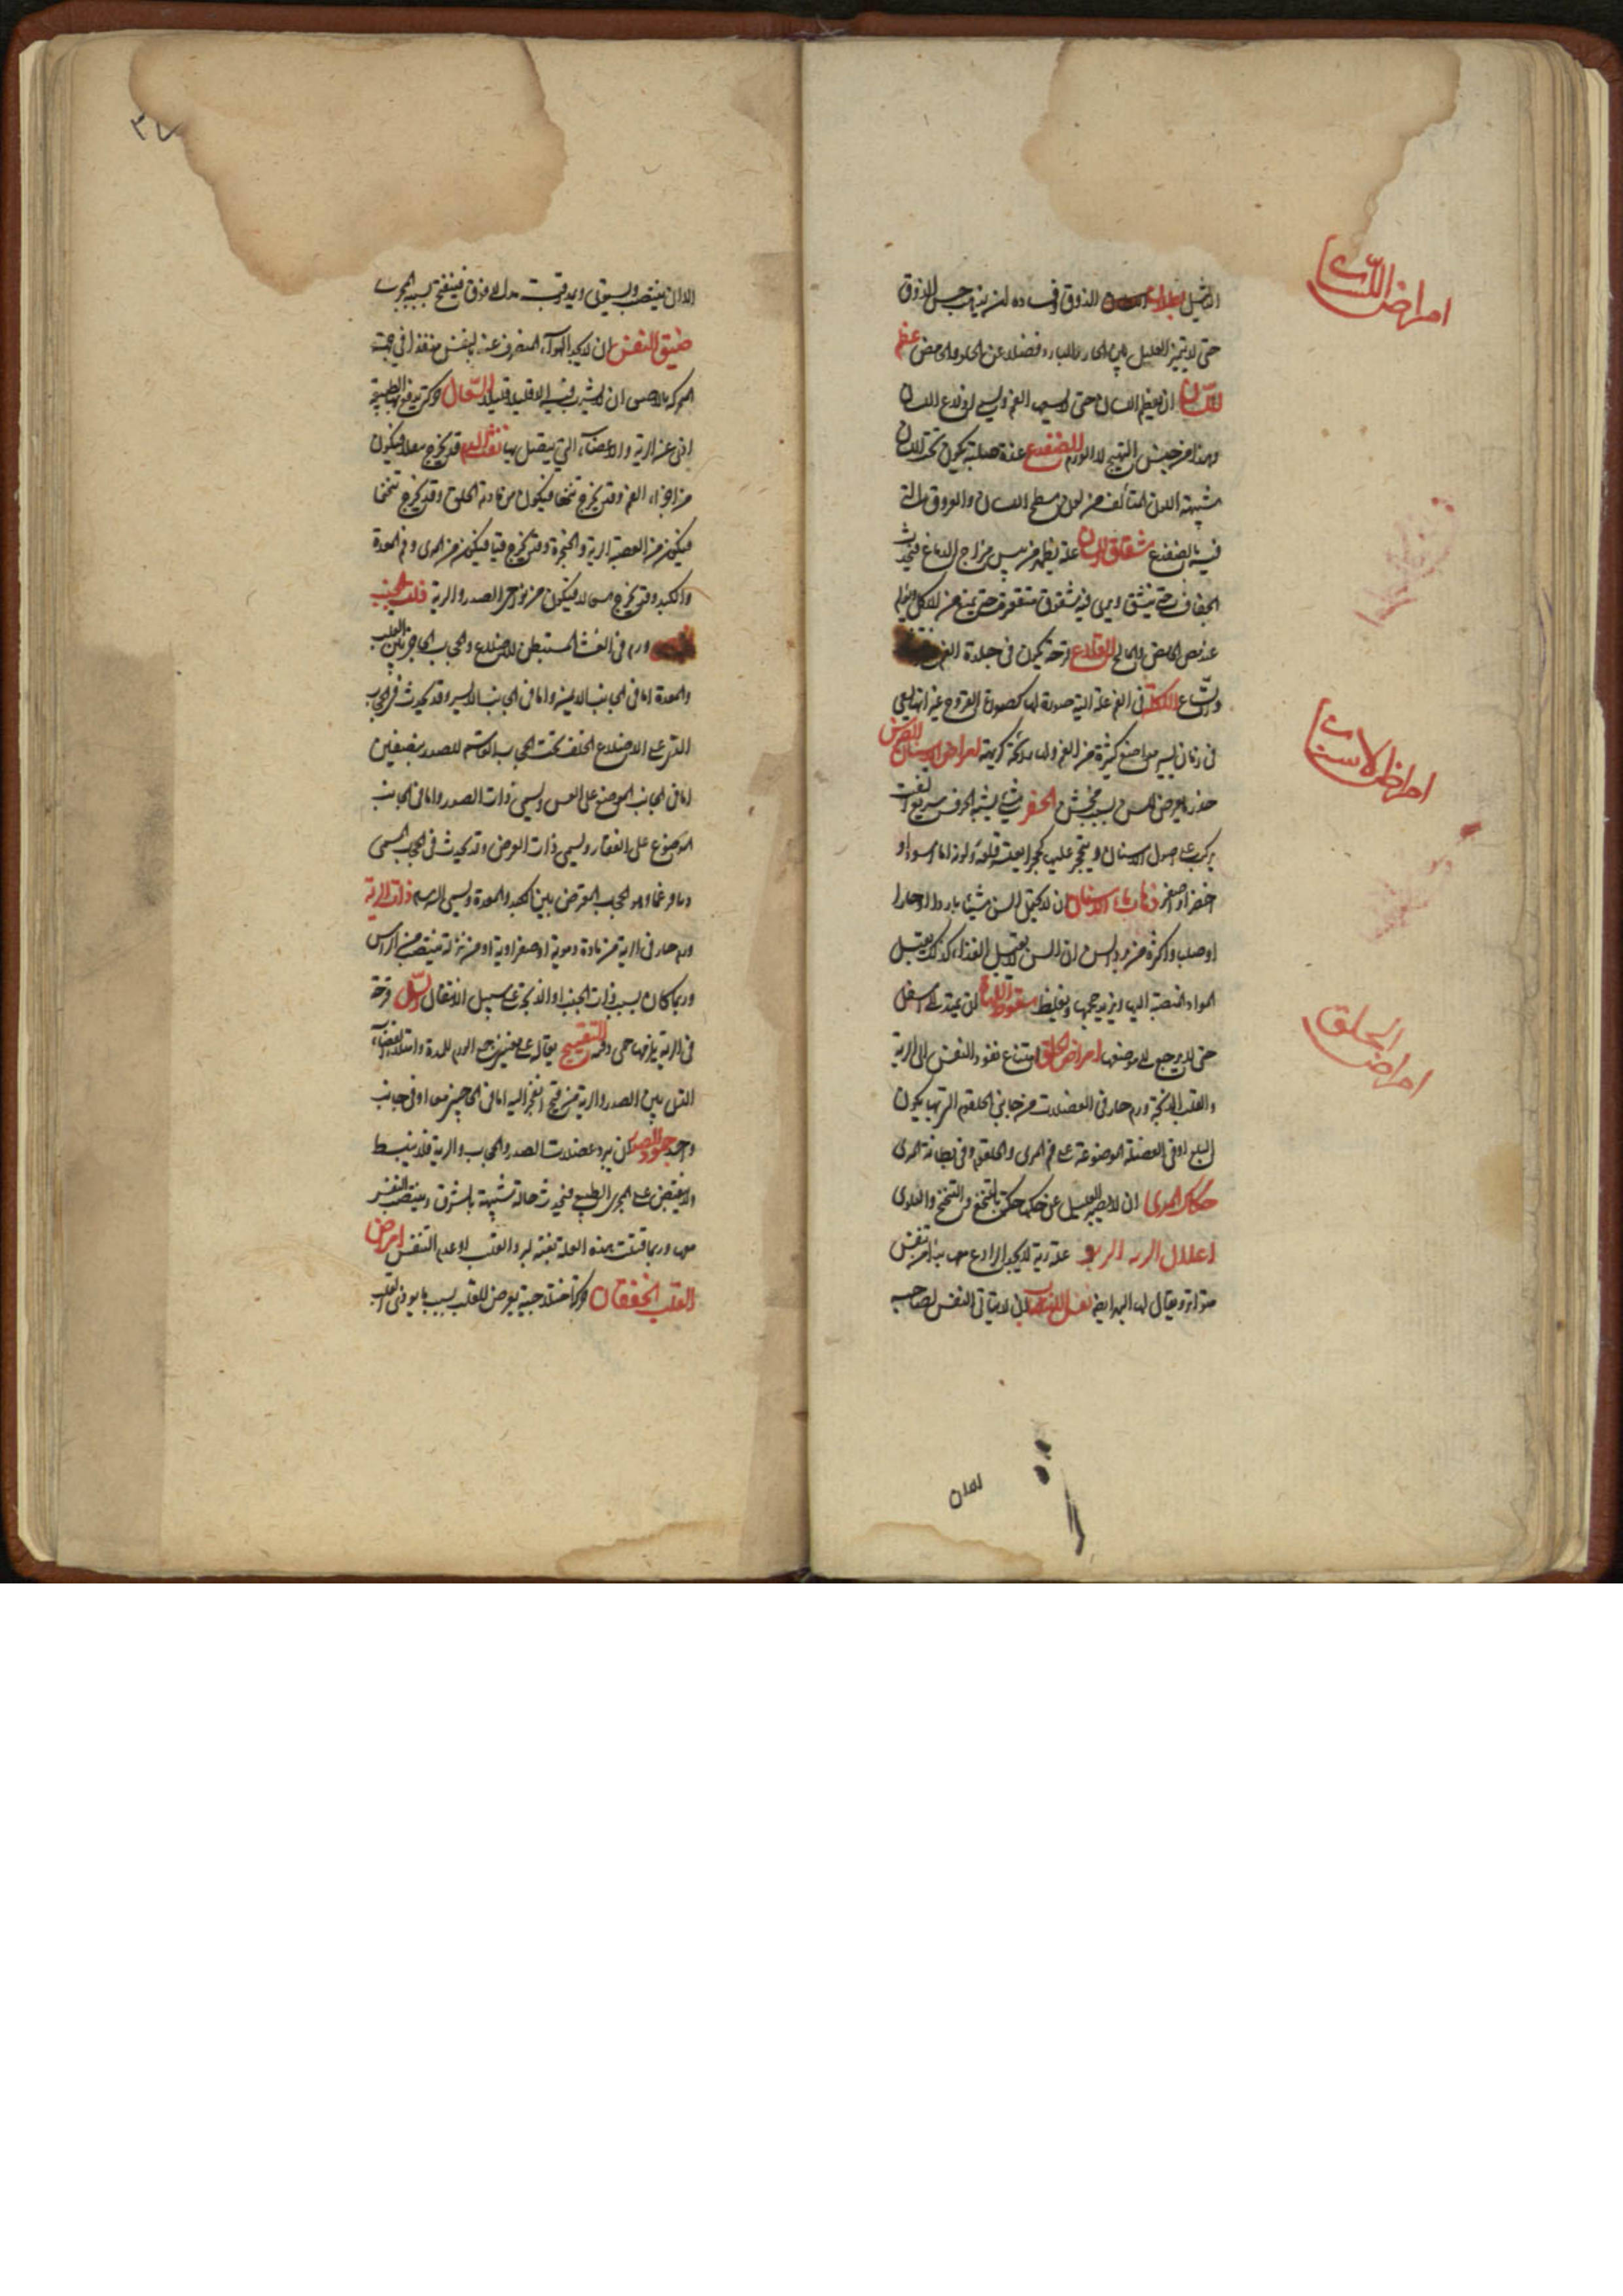 امراض اللسان
الذوق وفساده ان يذهب حس الذوق
حتى لا يتميز العليل بين الحار والبارد فضلا عن الحلو والحامض عظم
اللسان ان يعظم اللسان حتى لا يسعه الفم ويسمى ادلاع اللسان
وهذا من جنس التهيج لا الورم الضفدع غدة صلبة تكون تحت اللسان
شبيهة اللون المتألف من لون سطح اللسان والعروق التي
فيه بالضفدع شقاق اللسان علة تظهر من يبس مزاج الدماغ فيحدث
الجفاف حتى يتشقق ويرى فيه شقوق متقعرة حتى يمنع من الاكل ويؤلم
عند مص الحامض والمالح القلاع قرحة تكون في جلدة الفم
واتساع الاكلة في الفم علة آلية صورتها كصورة القروح غير انها تسعى
في زمان يسير مواضع كثيرة من الفم ولها رائحة كريهة امراض الاسنان الضرس
امراض الاسنان
خدر يعرض للسن بسبب مخشن الحفر شيء يشبه الخزف سريع التفتت
يركب على اصول الاسنان ويتحجر عليها تحجرا يعسر قلعه ولونه اما اسود او
اخضر او اصفر ذهاب ماء الاسنان ان لا يحتمل السن شيئا باردا او حارا
او صلبا واكثره من برد السن ان السن كما يقبل الغذاء كذلك يقبل
المواد المنصبة اليها ويزيد حجمها ويغلظ سقوط اللهاة ان تمتد الى اسفل
حتى لا يرجع الى موضعها امراض الحلق امتناع نفوذ النفس الى الرية
امراض الحلق
والقلب الذبحة ورم حار في العضلات من جانبي الحلقوم التي بها يكون
البلع او في العضلة الموضوعة على فم المرى والحلقوم وفي بطانة المرى
حكاك المرى ان لا يصبر العليل عن حكه بالتنخع والتنحنح والبلوى
اعلال الرية الربو علة رية لا يجد الوادع معها بدا من تنفس
متواتر ويقال لها البهر ايضا نفس الانتصاب ان لا يتاتى النفس لصاحبه
لعدان
٢٧
الا ان ينتصب ويستوي ويمد رقبته مدا الى فوق فينفتح بسببه المجرى
ضيق النفس ان لا يجد الهواء المتصرف عنه بالنفس منفذا في جهة
حركته بالحس ان لا يتسرب فيه الا قليلا قليلا السعال حركة تدفع بها الطبيعة
اذى عن الرية والاعضاء التي يتصل بها نفث الدم قد يخرج تفلا فيكون
من اجزاء الفم وقد يخرج تنخعا فيكون من ناحية الحلق وقد يخرج تنحنحا
فيكون من القصبة الرية والحنجرة وقد يخرج قيئا فيكون من المرى وفم المعدة
والكبد وقد يخرج سعالا فيكون من نواحي الصدر والرية ذات الجنب
ورم في الغشاء المستبطن للاضلاع والحجاب الحاجز بين القلب
والمعدة اما في الجانب الايمن واما في الجانب الايسر وقد يحدث في الحجاب
الذي على الاضلاع الخلف تحت الحجاب القاسم للصدر بنصفين
اما في الجانب الموضوع على القس ويسمى ذات الصدر واما في الجانب
الموضوع على الفقار ويسمى ذات العرض وقد يحدث في الحجاب المسمى
ديافرغما وهو الحجاب المعترض بين الكبد والمعدة ويسمى البرسام ذات الرية
ورم حار في الرية من مادة دموية او صفراوية او من نزلة تنصب من الراس
وربما كان بسبب ذات الجنب او الذبحة على سبيل الانتقال السل قرحة
في الرية يلزمها حمى دقية التقيح يقال على معنيين جمع الورم للمدة وامتلاء الفضاء
الذي بين الصدر والرية من قيح انفجر اليه اما في الجانبين معا او في جانب
واحد جمود الصدر ان يبرد عضلات الصدر والحجاب والرية فلا ينبسط
ولا ينقبض على المجرى الطبيعي فيحدث حالة شبيهة بالشرق وينتصب النفس
معها وربما قتلت هذه العلة بغتة لبرد القلب او عدم التنفس امراض
القلب الخفقان حركة اختلاجية يعرض للقلب بسبب ما يؤذي القلب